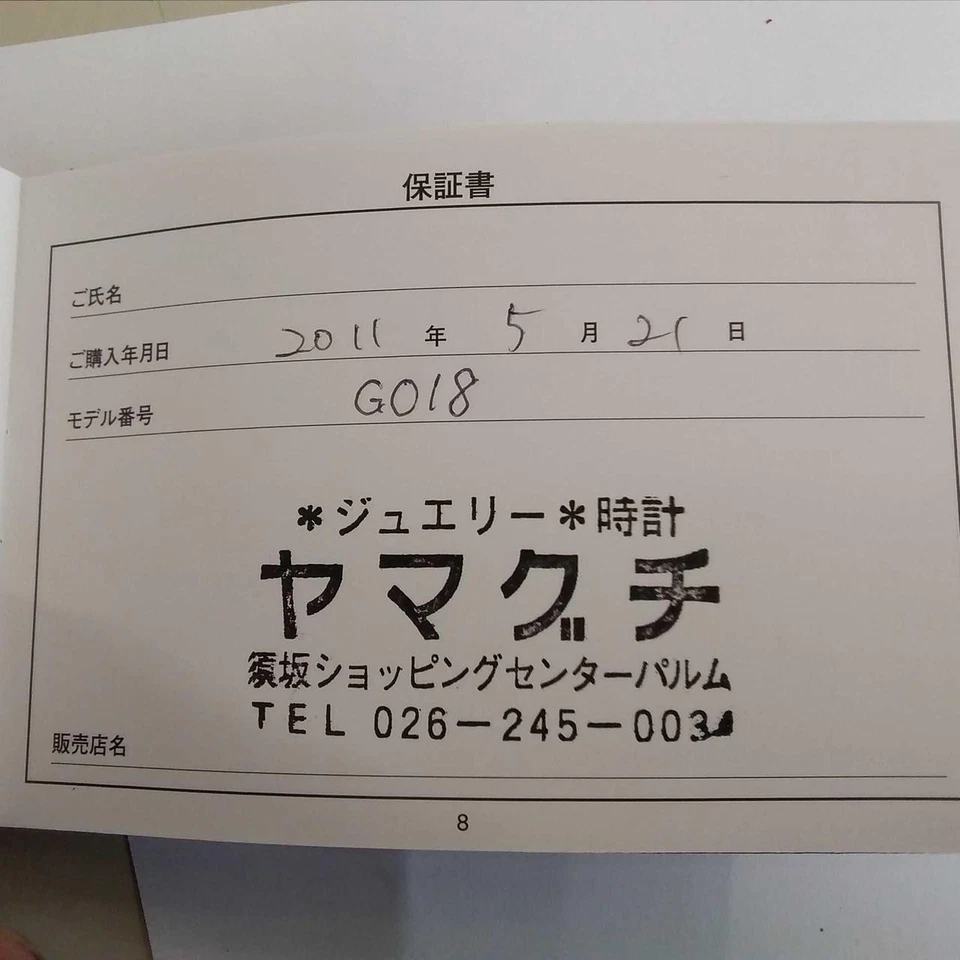 保証書
ご氏名
ご購入年月日 2011 年 5 月 21 日
モデル番号 G018
*ジュエリー*時計
ヤマグチ
須坂ショッピングセンターパルム
TEL 026-245-003
販売店名
8